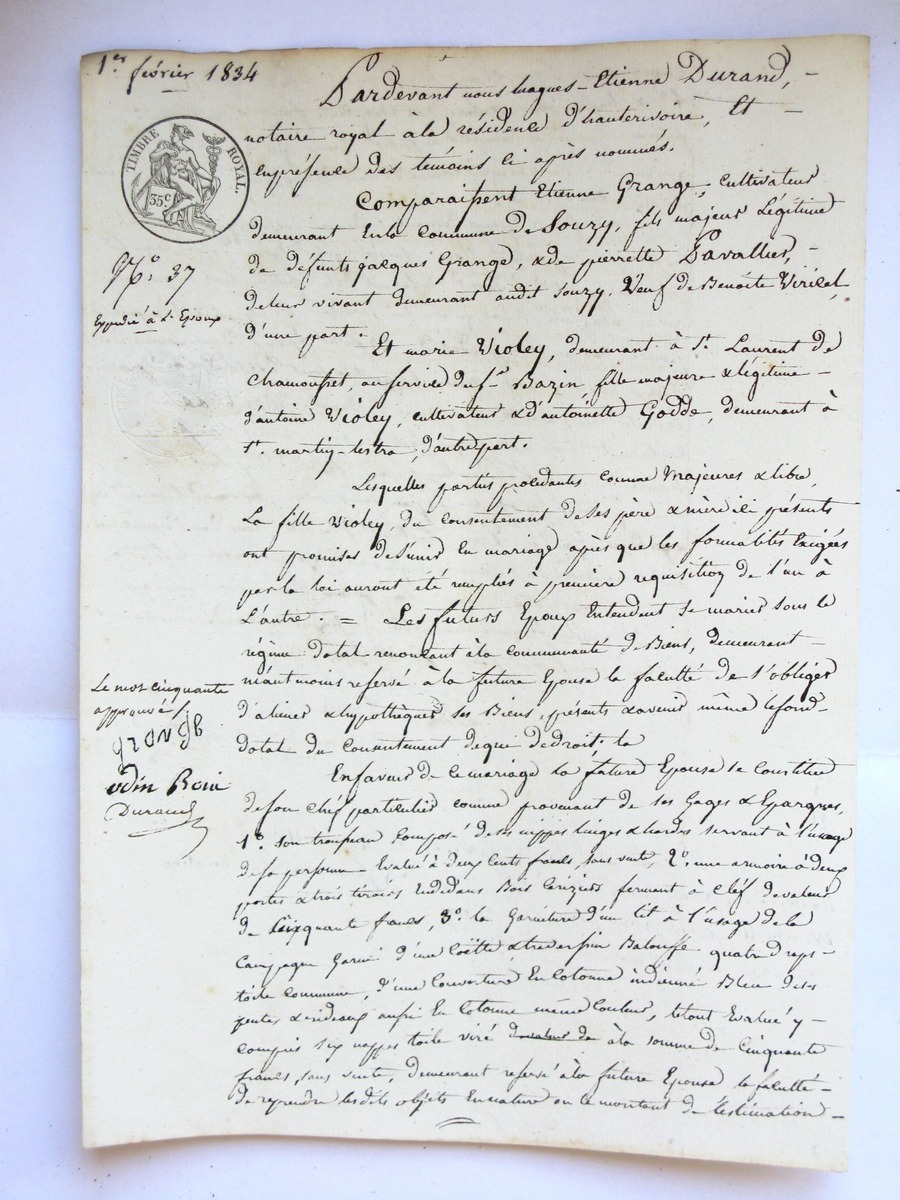 1er février 1834
TIMBRE ROYAL.
35c
Pardevant nous hugues-Etienne Durand,
notaire royal à la résidence d'hauterivoire, Et
En présence des témoins ci après nommés.
Comparaissent Etienne Grange, cultivateur
demeurant En la commune de Souzy, fils majeur Légitime
de défunts jacques Grange, & de pierrette Lavallier,
de leur vivant demeurant audit souzy, Veuf de Benoîte
d'une part.
No. 37
Expedié à l'Epoux
Et marie Violey, demeurant à St. Laurent de
Chamousset, au service du Sr Bazin, fille majeure & légitime
d'antoine Violey, cultivateur & d'antoinette Godde, demeurant à
St. martin-lestra, d'autre part.
Lesquelles parties procédantes comme Majeures & libre,
La fille Violey, du Consentement de Ses père & mère ici présents
ont promises de s'unir En mariage après que les formalités Exigées
par la loi auront été remplies à première requisition de l'un à
L'autre. = Les futurs Epoux Entendent se marier sous le
régime dotal renonçant à la communauté de Biens, demeurant
néantmoins reservé à la future Epouse la faculté de s'obliger
d'aliéner & hypothèquer ses Biens, présents & avenir même le fond
dotal du Consentement de qui de droit.
Le mot cinquante
approuvé
grange
odin Boin
Durand
En faveur de ce mariage la future Epouse se Constitue
de son chef particulier comme provenant de ses Gages & Epargnes,
1o. son trousseau Composé de ses nippes linges & hardes servant à l'usage
de sa personne Evalué à deux Cents francs, sans vente, 2o. une armoire à deux
portes & trois tiroirs Endedans Bois Cérizier fermant à Cléf de valeur
de Cinquante francs, 3o. la Garniture d'un lit à l'usage de la
Campagne Garni d'une Coëtte & traversin Balouffe quatre draps
toile commune, d'une Couverture En Cotonne indienne Bleu des
pentes & rideaux aussi En Cotonne même Couleur, le tout Evalué y
compris six nappes toile viré de valeur de à la somme de Cinquante
francs, sans vente, demeurant reservé à la future Epouse la faculté
de reprendre lesdits objets En nature ou le montant de l'estimation